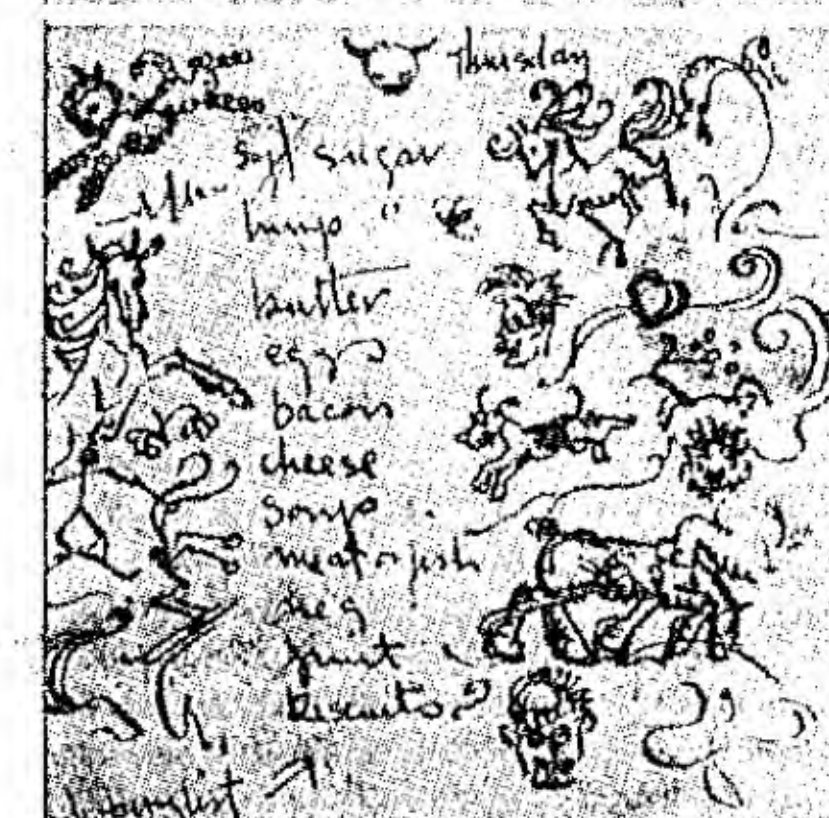 Thursday
soft sugar
lump "
butter
eggs
bacon
cheese
soup
meat or fish
veg
fruit
biscuits